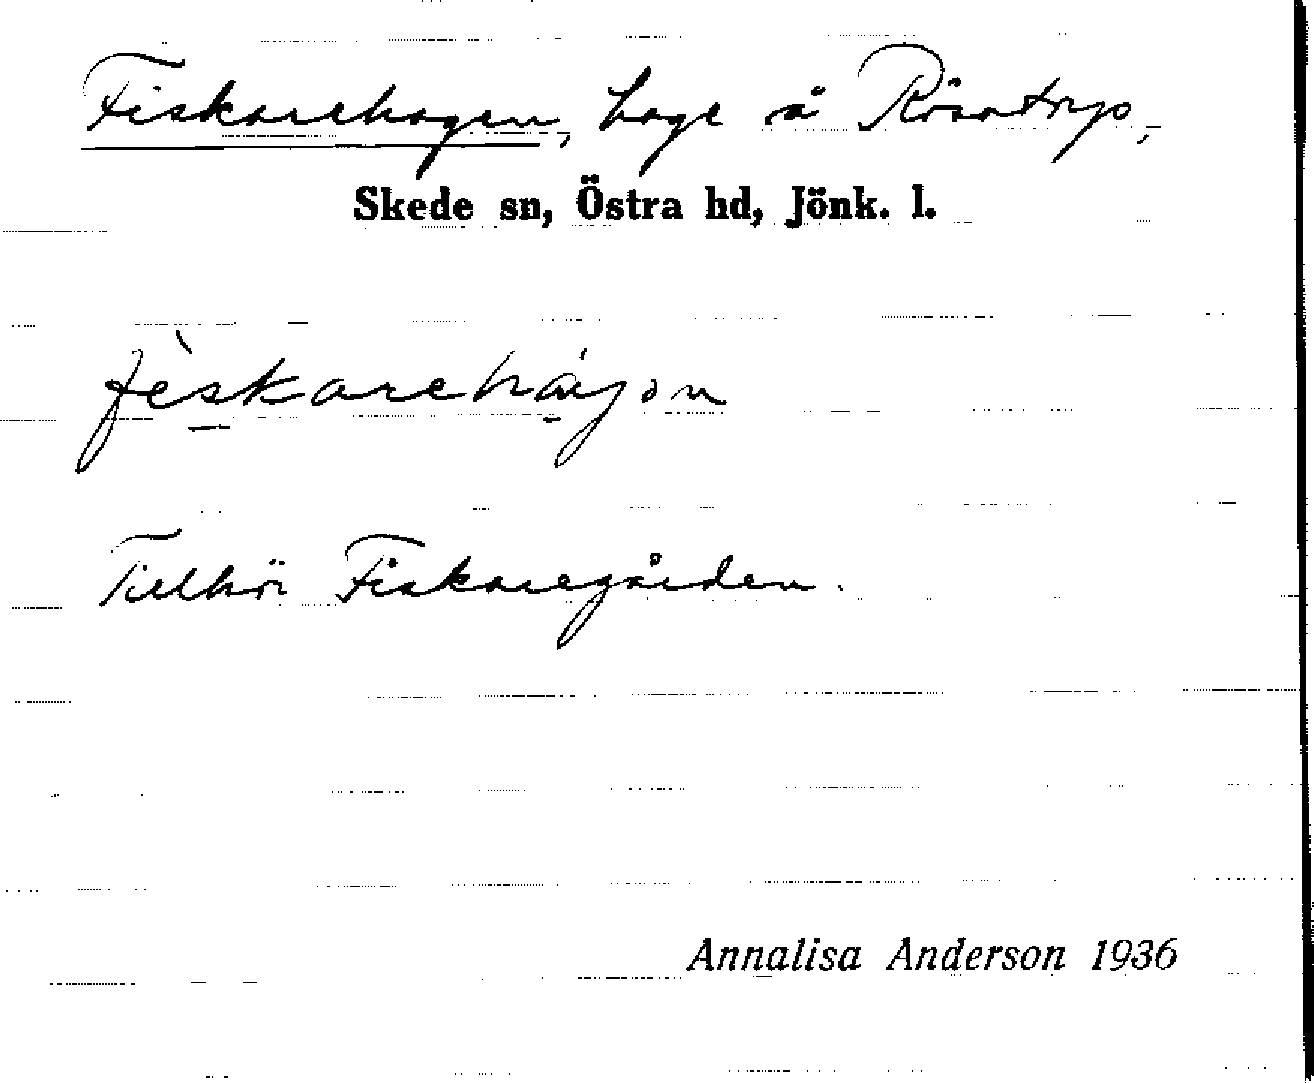 Fiskarehagen, hage å Rösatorp,
Skede sn, Östra hd, Jönk. l.
fèskarehájon
Tillhör Fiskaregården.
Annalisa Anderson 1936